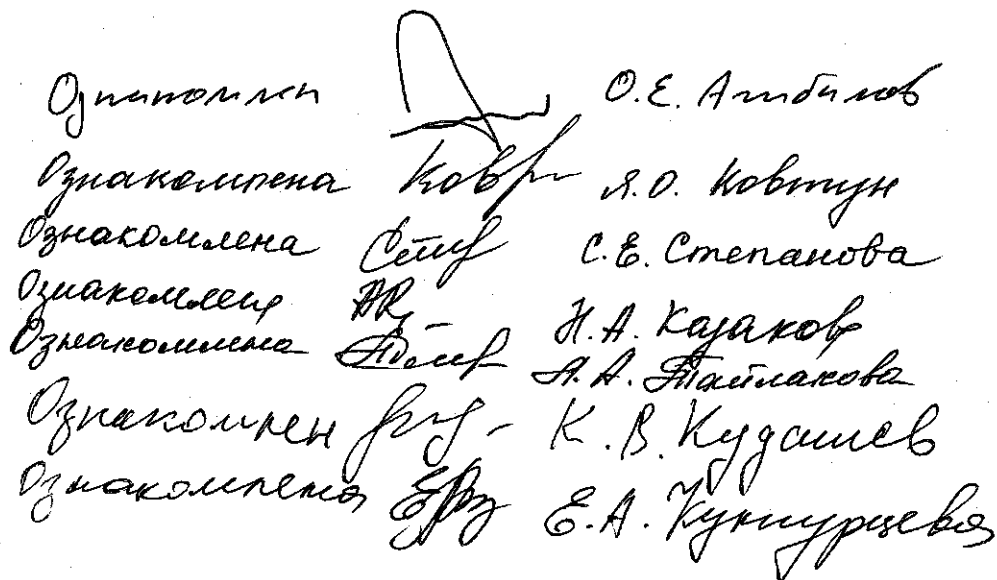 Ознакомлен О.Е. Агибалов
Ознакомлена Ковтун Я.О. Ковтун
Ознакомлена С.Е. Степанова
Ознакомлена Н.А. Казакова
Ознакомлена А.А. Тайлакова
Ознакомлен К.В. Кудашев
Ознакомлена Е.А.